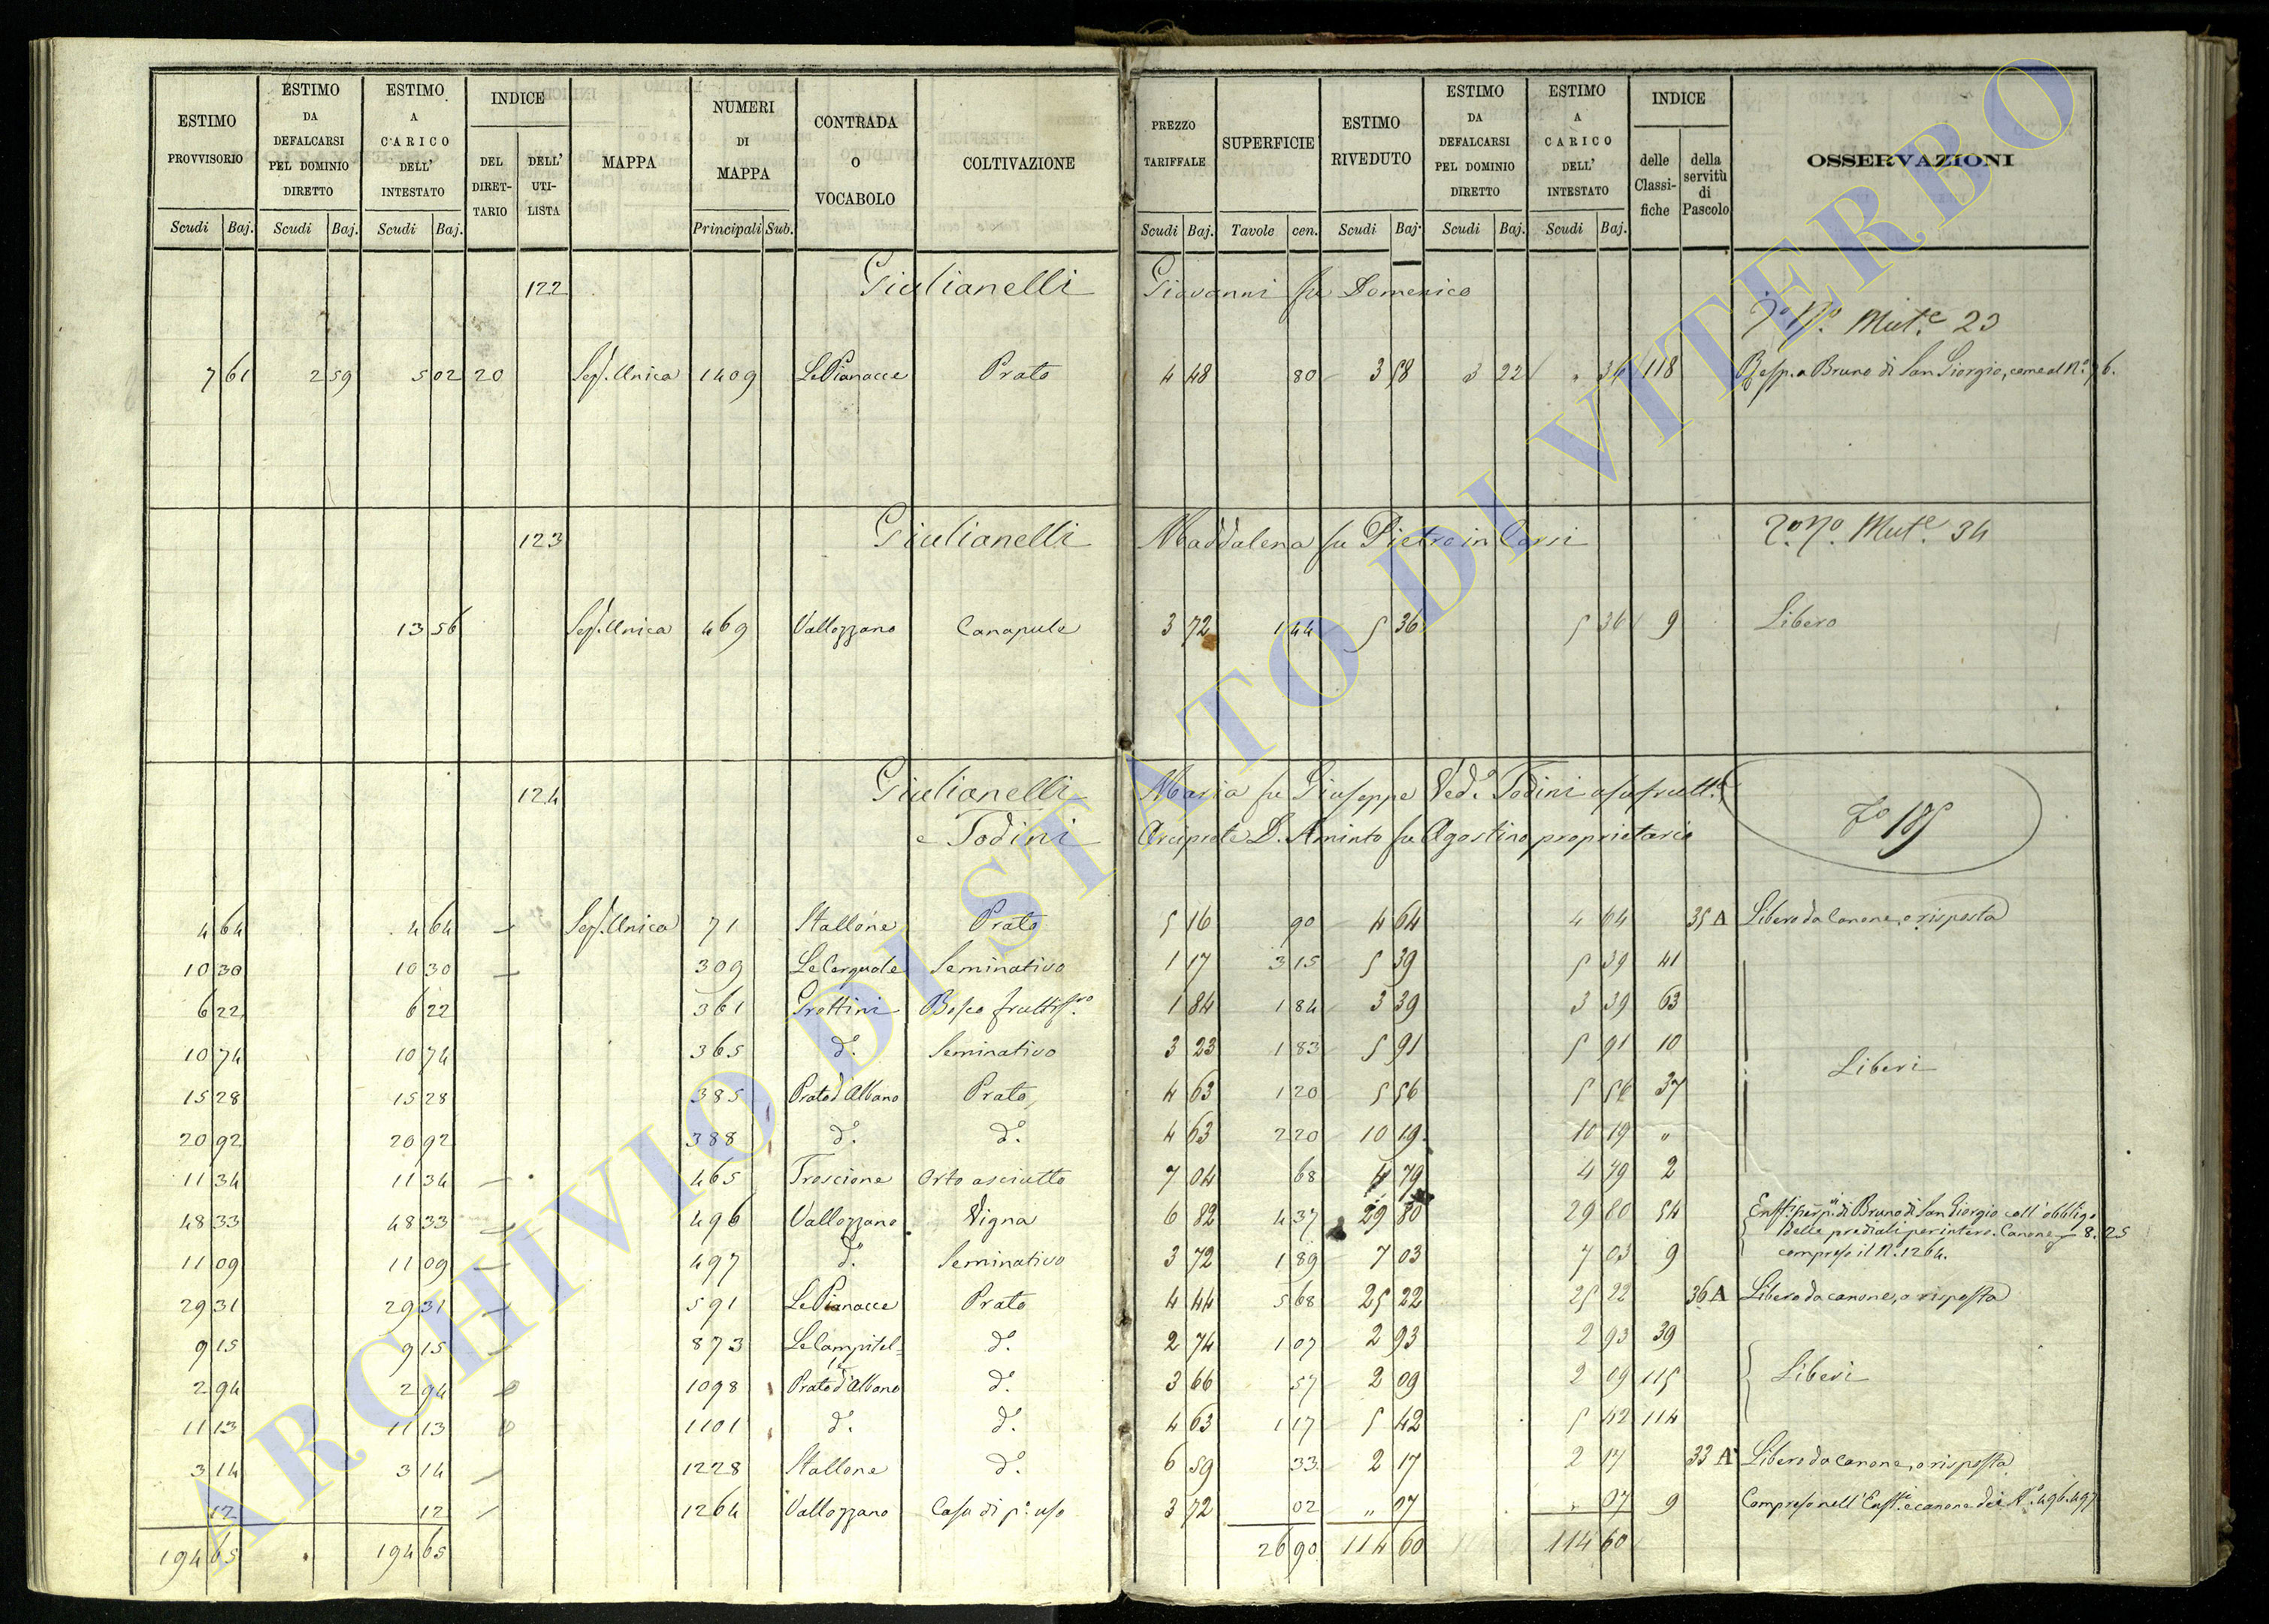 ESTIMO PROVVISORIO | ESTIMO DA DEFALCARSI PEL DOMINIO DIRETTO | ESTIMO A CARICO DELL' INTESTATO | INDICE DEL DIRET-TARIO | DELL' UTI-LISTA | MAPPA | NUMERI DI MAPPA | CONTRADA O VOCABOLO | COLTIVAZIONE | PREZZO TARIFFALE | SUPERFICIE | ESTIMO RIVEDUTO | ESTIMO DA DEFALCARSI PEL DOMINIO DIRETTO | ESTIMO A CARICO DELL' INTESTATO | INDICE delle Classi-fiche | della servitù di Pascolo | OSSERVAZIONI
Scudi Baj. | Scudi Baj. | Scudi Baj. | Principali Sub. | Scudi Baj. | Tavole cen. | Scudi Baj. | Scudi Baj. | Scudi Baj.
122 Giulianelli Giovanni fu Domenico
Mut.e 23
7 61 | 2 59 | 5 02 | 20 | Sez. Unica | 1409 | Le Pianacce | Prato | 4 48 | 80 | 3 58 | 3 22 | " 36 | 118 | Resp. a Bruno di San Giorgio, come al N.° 76.
123 Giulianelli Maddalena fu Pietro in Corsi
Mut.e 34
13 56 | Sez. Unica | 469 | Vallozzano | Canapule | 3 72 | 1 44 | 5 36 | 5 36 | 9 | Libero
124 Giulianelli Maria fu Giuseppe Ved.a Todini usufrutt.a
e Todini Arciprete D. Aminto fu Agostino proprietario
185
4 64 | 4 64 | Sez. Unica | 71 | Stallone | Prato | 5 16 | 90 | 4 64 | 4 64 | 35 A | Libero da Canone, o risposta
10 30 | 10 30 | 309 | Le Cerquole | Seminativo | 1 17 | 3 15 | 5 39 | 5 39 | 41
6 22 | 6 22 | 361 | Grottini | Bosco | 1 84 | 1 84 | 3 39 | 3 39 | 63
10 74 | 10 74 | 365 | d.° | Seminativo | 3 23 | 1 83 | 5 91 | 5 91 | 10
Liberi
15 28 | 15 28 | 385 | Prato d'Albano | Prato | 4 63 | 1 20 | 5 56 | 5 56 | 37
20 92 | 20 92 | 388 | d.° | d.° | 4 63 | 2 20 | 10 19 | 10 19 | "
11 34 | 11 34 | 465 | Troscione | Orto asciutto | 7 04 | 68 | 4 79 | 4 79 | 2
48 33 | 48 33 | 496 | Vallozzano | Vigna | 6 82 | 4 37 | 29 80 | 29 80 | 54 | di Bruno di San Giorgio coll'obbligo
delle prediali per intero. Canone 8.25
11 09 | 11 09 | 497 | d.° | Seminativo | 3 72 | 1 89 | 7 03 | 7 03 | 9 | compreso il N.° 1264.
29 31 | 29 31 | 591 | Le Pianacce | Prato | 4 44 | 5 68 | 25 22 | 25 22 | 36 A | Libero da canone, o risposta
9 15 | 9 15 | 873 | Le Campitelle | d.° | 2 74 | 1 07 | 2 93 | 2 93 | 39
2 94 | 2 94 | 1098 | Prato d'Albano | d.° | 3 66 | 57 | 2 09 | 2 09 | 115 | Liberi
11 13 | 11 13 | 1101 | d.° | d.° | 4 63 | 1 17 | 5 42 | 5 42 | 114
3 14 | 3 14 | 1228 | Stallone | d.° | 6 59 | 33 | 2 17 | 2 17 | 33 A | Libero da canone, o risposta
12 | 12 | 1264 | Vallozzano | Casa di p.° uso | 3 72 | 02 | " 07 | " 07 | 9 | Compreso nell' canone dei N.i 496. 497
194 65 | 194 65 | 26 90 | 114 60 | 114 60
ARCHIVIO DI STATO DI VITERBO